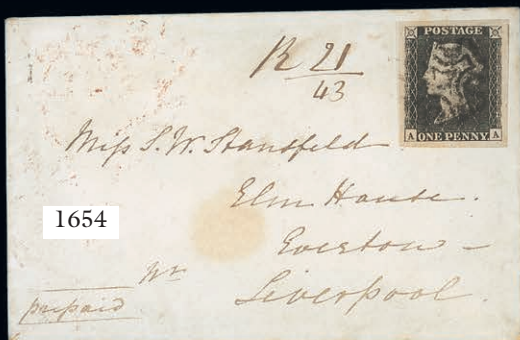 POSTAGE
A ONE PENNY A
R 21
43
Miss S. W. Stansfeld
Elm House.
Everton –
Liverpool.
1654
prepaid